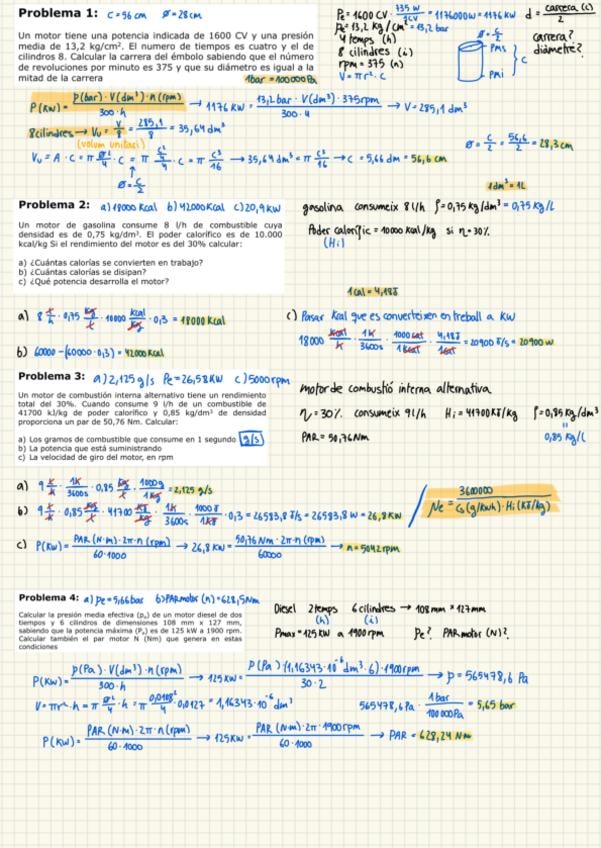 Problema 1: c=56 cm Ø=28cm
Un motor tiene una potencia indicada de 1600 CV y una presión
media de 13,2 kg/cm². El numero de tiempos es cuatro y el de
cilindros 8. Calcular la carrera del émbolo sabiendo que el número
de revoluciones por minuto es 375 y que su diámetro es igual a la
mitad de la carrera
1bar = 100000 Pa
Pe = 1600 CV · 735 W / 1CV = 1176000W = 1176 KW
Pe = 13,2 Kg / cm² = 13,2 bar
4 temps (h)
8 cilindres (i)
rpm = 375 (n)
V = π r² · c
d = carrera (c) / 2
Ø = c/2
PMS
PMi
c
carrera?
diàmetre?
P(KW) = P(bar) · V(dm³) · n(rpm) / 300·h → 1176 KW = 13,2 bar · V(dm³) · 375 rpm / 300·4 → V = 285,1 dm³
8 cilindres → Vu = V/8 = 285,1/8 = 35,64 dm³
(volum unitari)
Ø = c/2 = 56,6/2 = 28,3 cm
Vu = A · c = π Ø²/4 · c = π c²/4/4 · c = π c³/16 → 35,64 dm³ = π c³/16 → c = 5,66 dm = 56,6 cm
Ø = c/2
1dm³ = 1L
Problema 2: a) 18000 Kcal b) 42000 Kcal c) 20,9 KW
Un motor de gasolina consume 8 l/h de combustible cuya
densidad es de 0,75 kg/dm³. El poder calorífico es de 10.000
kcal/kg Si el rendimiento del motor es del 30% calcular:
a) ¿Cuántas calorías se convierten en trabajo?
b) ¿Cuántas calorías se disipan?
c) ¿Qué potencia desarrolla el motor?
gasolina consumeix 8 l/h ρ=0,75 kg/dm³ = 0,75 Kg/L
Poder calorífic = 10000 Kcal/kg si η=30%
(Hi)
1 cal = 4,18J
a) 8 L/h · 0,75 Kg/L · 10000 kcal/Kg · 0,3 = 18000 Kcal
b) 60000 - (60000·0,3) = 42000 Kcal
c) Pasar Kcal que es converteixen en treball a KW
18000 Kcal/h · 1h/3600s · 1000 cal/1 Kcal · 4,18J/1cal = 20900 J/s = 20900 W
Problema 3: a) 2,125 g/s Pe = 26,58KW c) 5000 rpm
Un motor de combustión interna alternativo tiene un rendimiento
total del 30%. Cuando consume 9 l/h de un combustible de
41700 kJ/kg de poder calorífico y 0,85 kg/dm³ de densidad
proporciona un par de 50,76 Nm. Calcular:
a) Los gramos de combustible que consume en 1 segundo g/s
b) La potencia que está suministrando
c) La velocidad de giro del motor, en rpm
motor de combustió interna alternativa
η = 30% consumeix 9 l/h Hi = 41700 KJ/kg ρ=0,85 Kg/dm³
=
0,85 Kg/L
PAR = 50,76 Nm
a) 9 L/h · 1h/3600s · 0,85 Kg/L · 1000g/1Kg = 2,125 g/s
b) 9 L/h · 0,85 Kg/L · 41700 KJ/Kg · 1h/3600s · 1000J/1KJ · 0,3 = 26583,8 J/s = 26583,8 W = 26,8 KW
ηe = 3600000 / Cs(g/kwh) · Hi (KJ/kg)
c) P(KW) = PAR (N·m) · 2π · n (rpm) / 60·1000 → 26,8 KW = 50,76 Nm · 2π · n (rpm) / 60000 → n = 5042 rpm
Problema 4: a) pe = 5,66 bar b) PAR motor (N) = 628,5 Nm
Calcular la presión media efectiva (pₑ) de un motor diesel de dos
tiempos y 6 cilindros de dimensiones 108 mm x 127 mm,
sabiendo que la potencia máxima (Pₑ) es de 125 kW a 1900 rpm.
Calcular también el par motor N (Nm) que genera en estas
condiciones
Diesel 2 temps 6 cilindres → 108 mm × 127mm
(h) (i)
Pmax = 125 KW a 1900 rpm Pe? PAR motor (N)?
P(KW) = p(Pa) · V(dm³) · n(rpm) / 300·h → 125 KW = p(Pa) · (1,16343·10⁻⁶ dm³ · 6) · 1900 rpm / 30·2 → p = 565478,6 Pa
V = π r² · h = π Ø²/4 · h = π 0,0108²/4 · 0,0127 = 1,16343·10⁻⁶ dm³
565478,6 Pa · 1 bar / 100 000 Pa = 5,65 bar
P(KW) = PAR (N·m) · 2π · n (rpm) / 60·1000 → 125 KW = PAR (N·m) · 2π · 1900 rpm / 60·1000 → PAR = 628,24 Nm